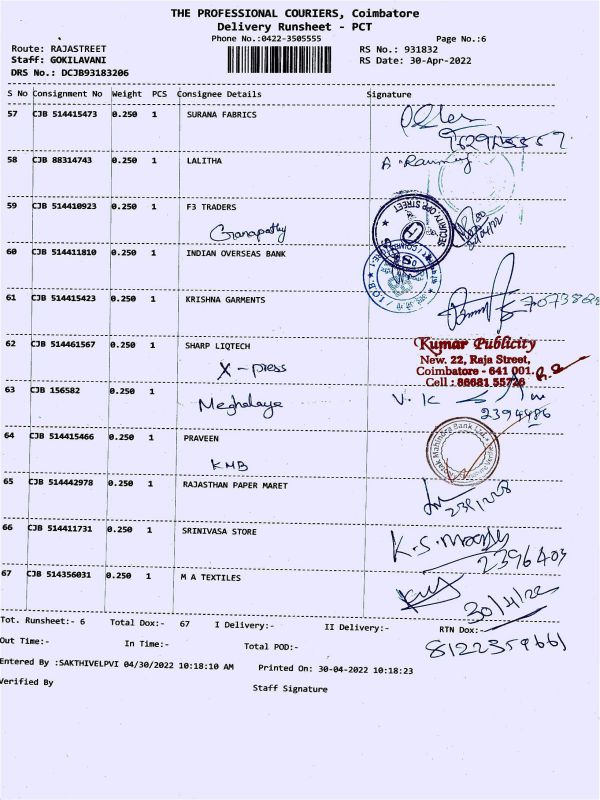 THE PROFESSIONAL COURIERS, Coimbatore
Delivery Runsheet - PCT
Phone No.:0422-3505555 Page No.:6
Route: RAJASTREET RS No.: 931832
Staff: GOKILAVANI RS Date: 30-Apr-2022
DRS No.: DCJB93183206
S No Consignment No Weight PCS Consignee Details Signature
57 CJB 514415473 0.250 1 SURANA FABRICS
58 CJB 88314743 0.250 1 LALITHA
59 CJB 514410923 0.250 1 F3 TRADERS
Ganapathy
60 CJB 514411810 0.250 1 INDIAN OVERSEAS BANK
61 CJB 514415423 0.250 1 KRISHNA GARMENTS
62 CJB 514461567 0.250 1 SHARP LIQTECH
Kumar Publicity
New. 22, Raja Street,
Coimbatore - 641 001.
Cell : 86681 55726
X-press
63 CJB 156582 0.250 1
Meghalaya V. K
2394486
64 CJB 514415466 0.250 1 PRAVEEN
KMB
65 CJB 514442978 0.250 1 RAJASTHAN PAPER MARET
66 CJB 514411731 0.250 1 SRINIVASA STORE
K.S. Moorthy
2396403
67 CJB 514356031 0.250 1 M A TEXTILES
30/4/22
Tot. Runsheet:- 6 Total Dox:- 67 I Delivery:- II Delivery:- RTN Dox:-
8122359661
Out Time:- In Time:- Total POD:-
Entered By :SAKTHIVELPVI 04/30/2022 10:18:10 AM Printed On: 30-04-2022 10:18:23
Verified By Staff Signature